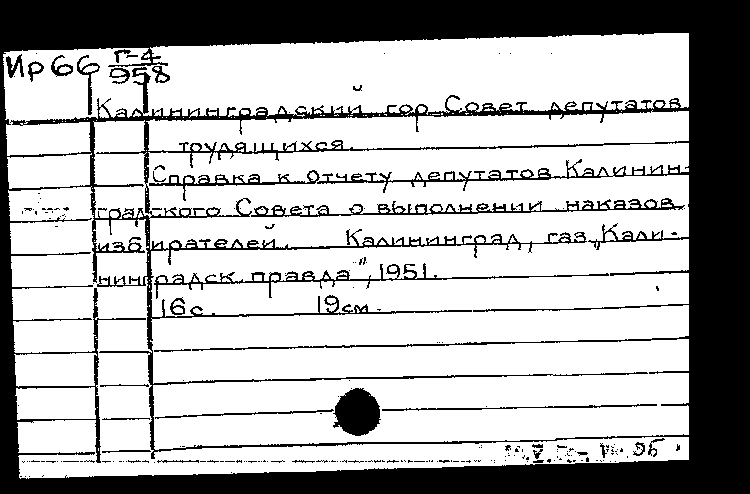 Ир 66 Г-4
958
Калининградский гор. Совет депутатов
трудящихся.
Справка к отчету депутатов Калинин-
градского Совета о выполнении наказов
избирателей. Калининград, газ. „Кали-
нинградск. правда", 1951.
16 с. 19 см.